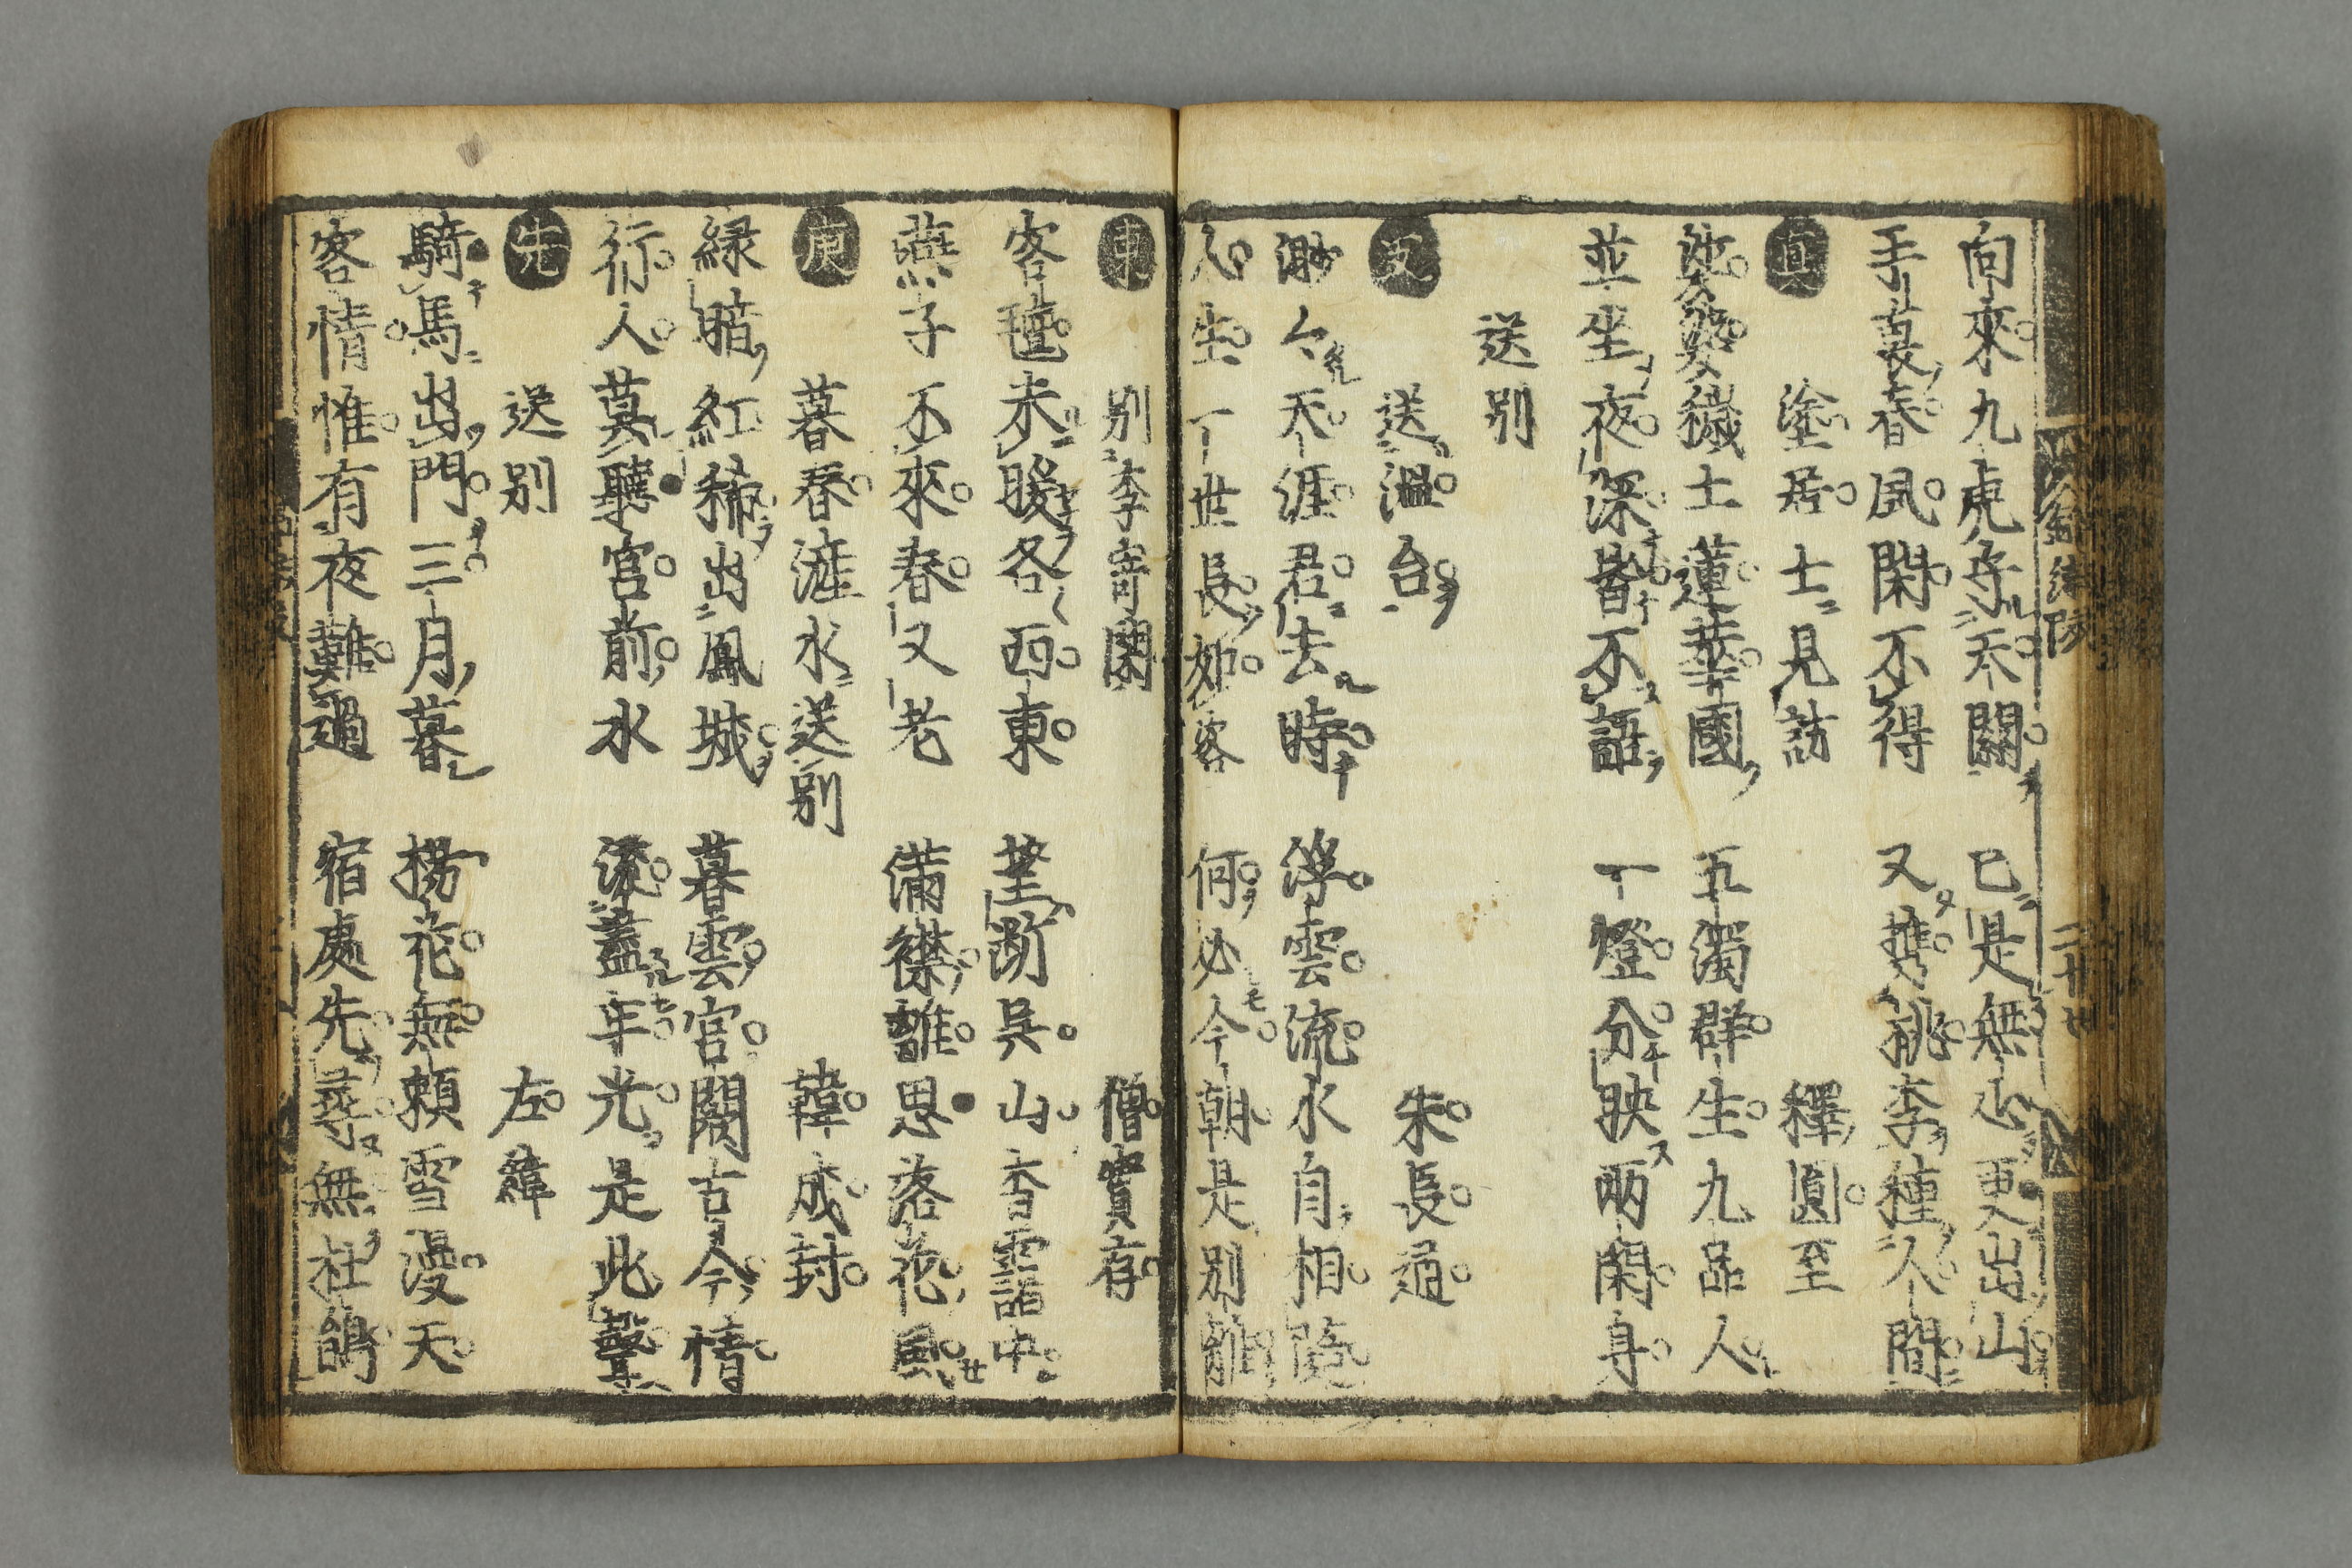 向來九虎守天關 已是無心更出山
手蔓春風閑不得 又携桃李種人間
真 塗居士見訪 釋圓至
婆娑穢土蓮華國 五濁群生九品人
並坐夜深皆不語 一燈分映兩閑身
送別
又 送溫台 朱長通
渺々天涯君去時 浮雲流水自相隨
人生一世長如客 何必今朝是別離
東 別李 僧實存
客氊未暖各西東 望斷吳山杳靄中
燕子不來春又老 滿襟離思落花風
庚 暮春滻水送別 韓成封
緑暗紅稀出鳳城 暮雲宮闕古今情
行人莫聽宮前水 流盡年光是此聲
先 送別 左緯
騎馬出門三月暮 楊花無頼雪漫天
客情惟有夜難過 宿處先尋無杜鵑